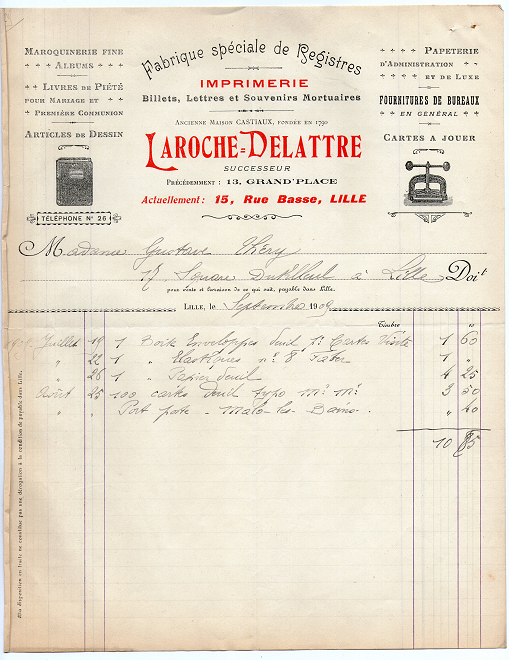 Fabrique spéciale de Registres
IMPRIMERIE
Billets, Lettres et Souvenirs Mortuaires
Ancienne Maison CASTIAUX, fondée en 1790
LAROCHE=DELATTRE
SUCCESSEUR
Précédemment : 13, GRAND'PLACE
Actuellement : 15, Rue Basse, LILLE
Maroquinerie fine
Albums
Livres de Piété
pour Mariage et
Première Communion
Articles de Dessin
TÉLÉPHONE N° 26
Papeterie
d'Administration
et de Luxe
Fournitures de Bureaux
en général
Cartes a Jouer
Madame Gustave Théry
17 Square Dutilleul à Lille Doit
pour vente et livraison de ce qui suit, payable dans Lille.
Lille, le Septembre 1909
Timbre
Juillet 19 1 Boîte Enveloppes deuil pr Cartes Visite 1 60
" 22 1 " Elastiques n° 8 1 "
" 26 1 " Papier deuil 4 25
Août 25 100 cartes deuil typo Mr Me 3 50
" " Port poste - Malo-les-Bains. " 40
10 85
Nos dispositions en traite ne constituent pas une dérogation à la condition de payable dans Lille.